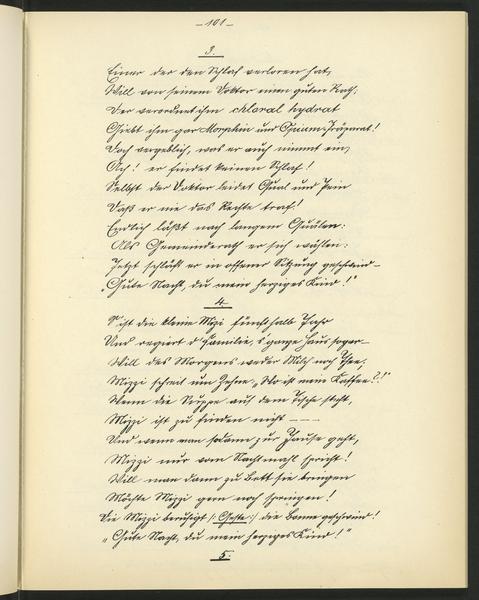 - 101 -
3.
Einer der den Schlaf verloren hat,
Will von seinem Doktor einen guten Rath,
Der verordnet ihm chloral hydrat
Giebt ihm gar Morphin und Opium-Präparat!
Doch vergeblich, was er auch nimmt ein,
Ach! er findet keinen Schlaf!
Selbst der Doktor leidet Qual und Pein
Daß er nie das Rechte traf!
Endlich läßt nach langem Quälen:
Als Gemeinderath er sich wählen:
Jetzt schläft er in offener Sitzung geschwind -
„Gute Nacht, du mein herziges Kind!"
4.
S' ist die kleine Mizi fünfthalb Jahr
Und regiert d' Familie, s' ganze Haus sogar -
Will des Morgens weder Milch noch Thee,
Mizzi schreit um Zehne „Wo ist mein Kaffee?!"
Wenn die Suppe auf dem Tische steht,
Mizzi ist zu finden nicht - - -
Und wenn man sodann zur Jause geht,
Mizzi nur vom Nachtmahl spricht!
Will man dann zu Bett sie bringen
Möchte Mizzi gern noch springen!
Die Mizzi beruhigt /: Geste :/ die Bonne geschwind!
„Gute Nacht, du mein herziges Kind!"
5.